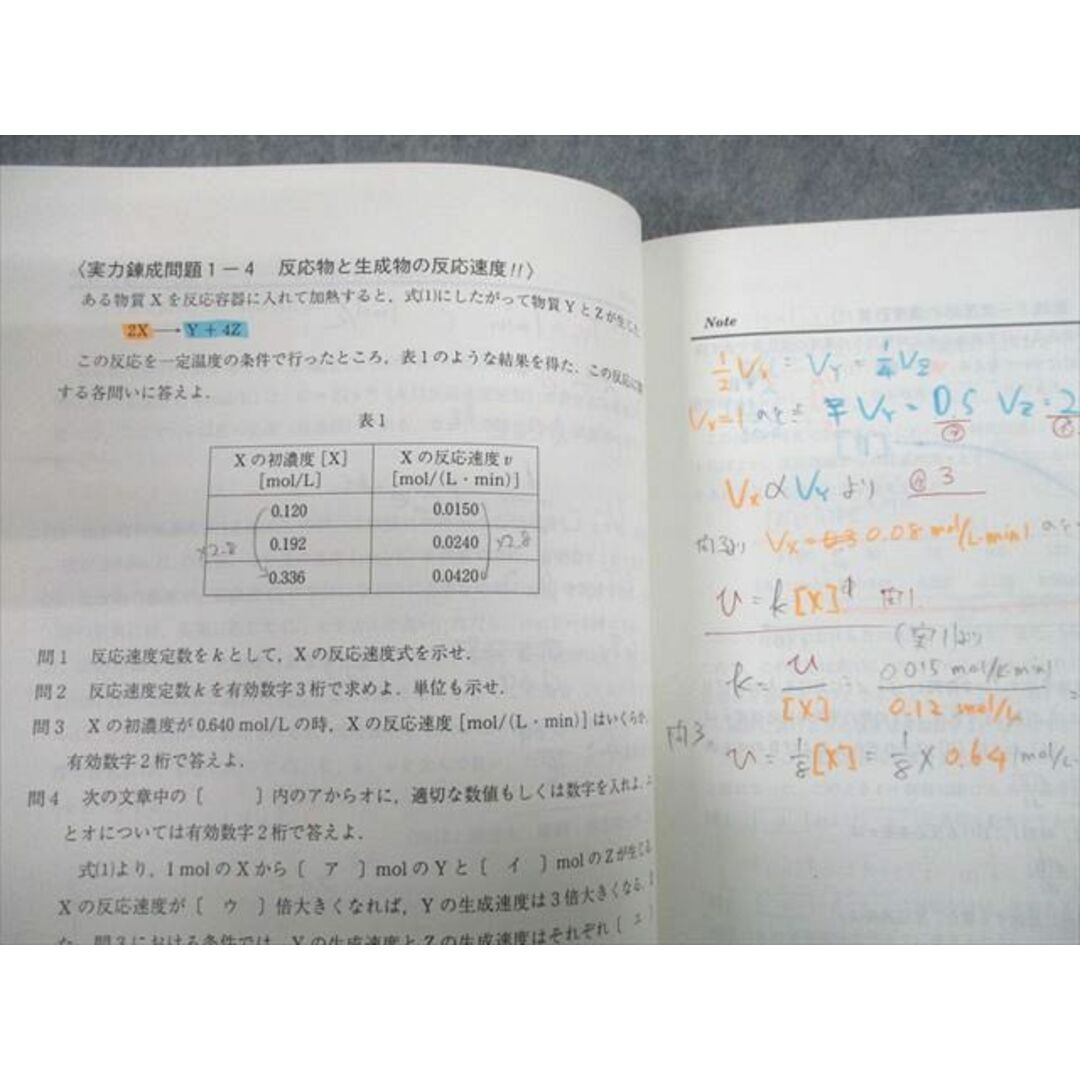 〈実力錬成問題1-4 反応物と生成物の反応速度!!〉
ある物質Xを反応容器に入れて加熱すると，式(1)にしたがって物質YとZが生じた．
2X → Y + 4Z
この反応を一定温度の条件で行ったところ，表1のような結果を得た．この反応に
する各問いに答えよ．
表1
Xの初濃度 [X] [mol/L] Xの反応速度 v [mol/(L・min)]
0.120 0.0150
0.192 0.0240
0.336 0.0420
×2.8 ×2.8
問1 反応速度定数をkとして，Xの反応速度式を示せ．
問2 反応速度定数kを有効数字3桁で求めよ．単位も示せ．
問3 Xの初濃度が0.640 mol/Lの時，Xの反応速度 [mol/(L・min)] はいくらか．
有効数字2桁で答えよ．
問4 次の文章中の〔 〕内のアからオに，適切な数値もしくは数字を入れよ．エ
とオについては有効数字2桁で答えよ．
式(1)より，1molのXから〔 ア 〕molのYと〔 イ 〕molのZが生じる
Xの反応速度が〔 ウ 〕倍大きくなれば，Yの生成速度は3倍大きくなる．
た，問3における条件では，Yの生成速度とZの生成速度はそれぞれ〔 エ 〕
Note
1/2 Vx = VY = 1/4 VZ
Vx=1 のとき VY = 0.5 VZ = 2
Vx ∝ VY より ㋒ 3
問3より Vx = 0.08 mol/(L・min) のとき
v = k[X] 問1.
k = v/[X] = 0.015 mol/L min / 0.12 mol/L =
問3. v = 1/8 [X] = 1/8 × 0.64 mol/L